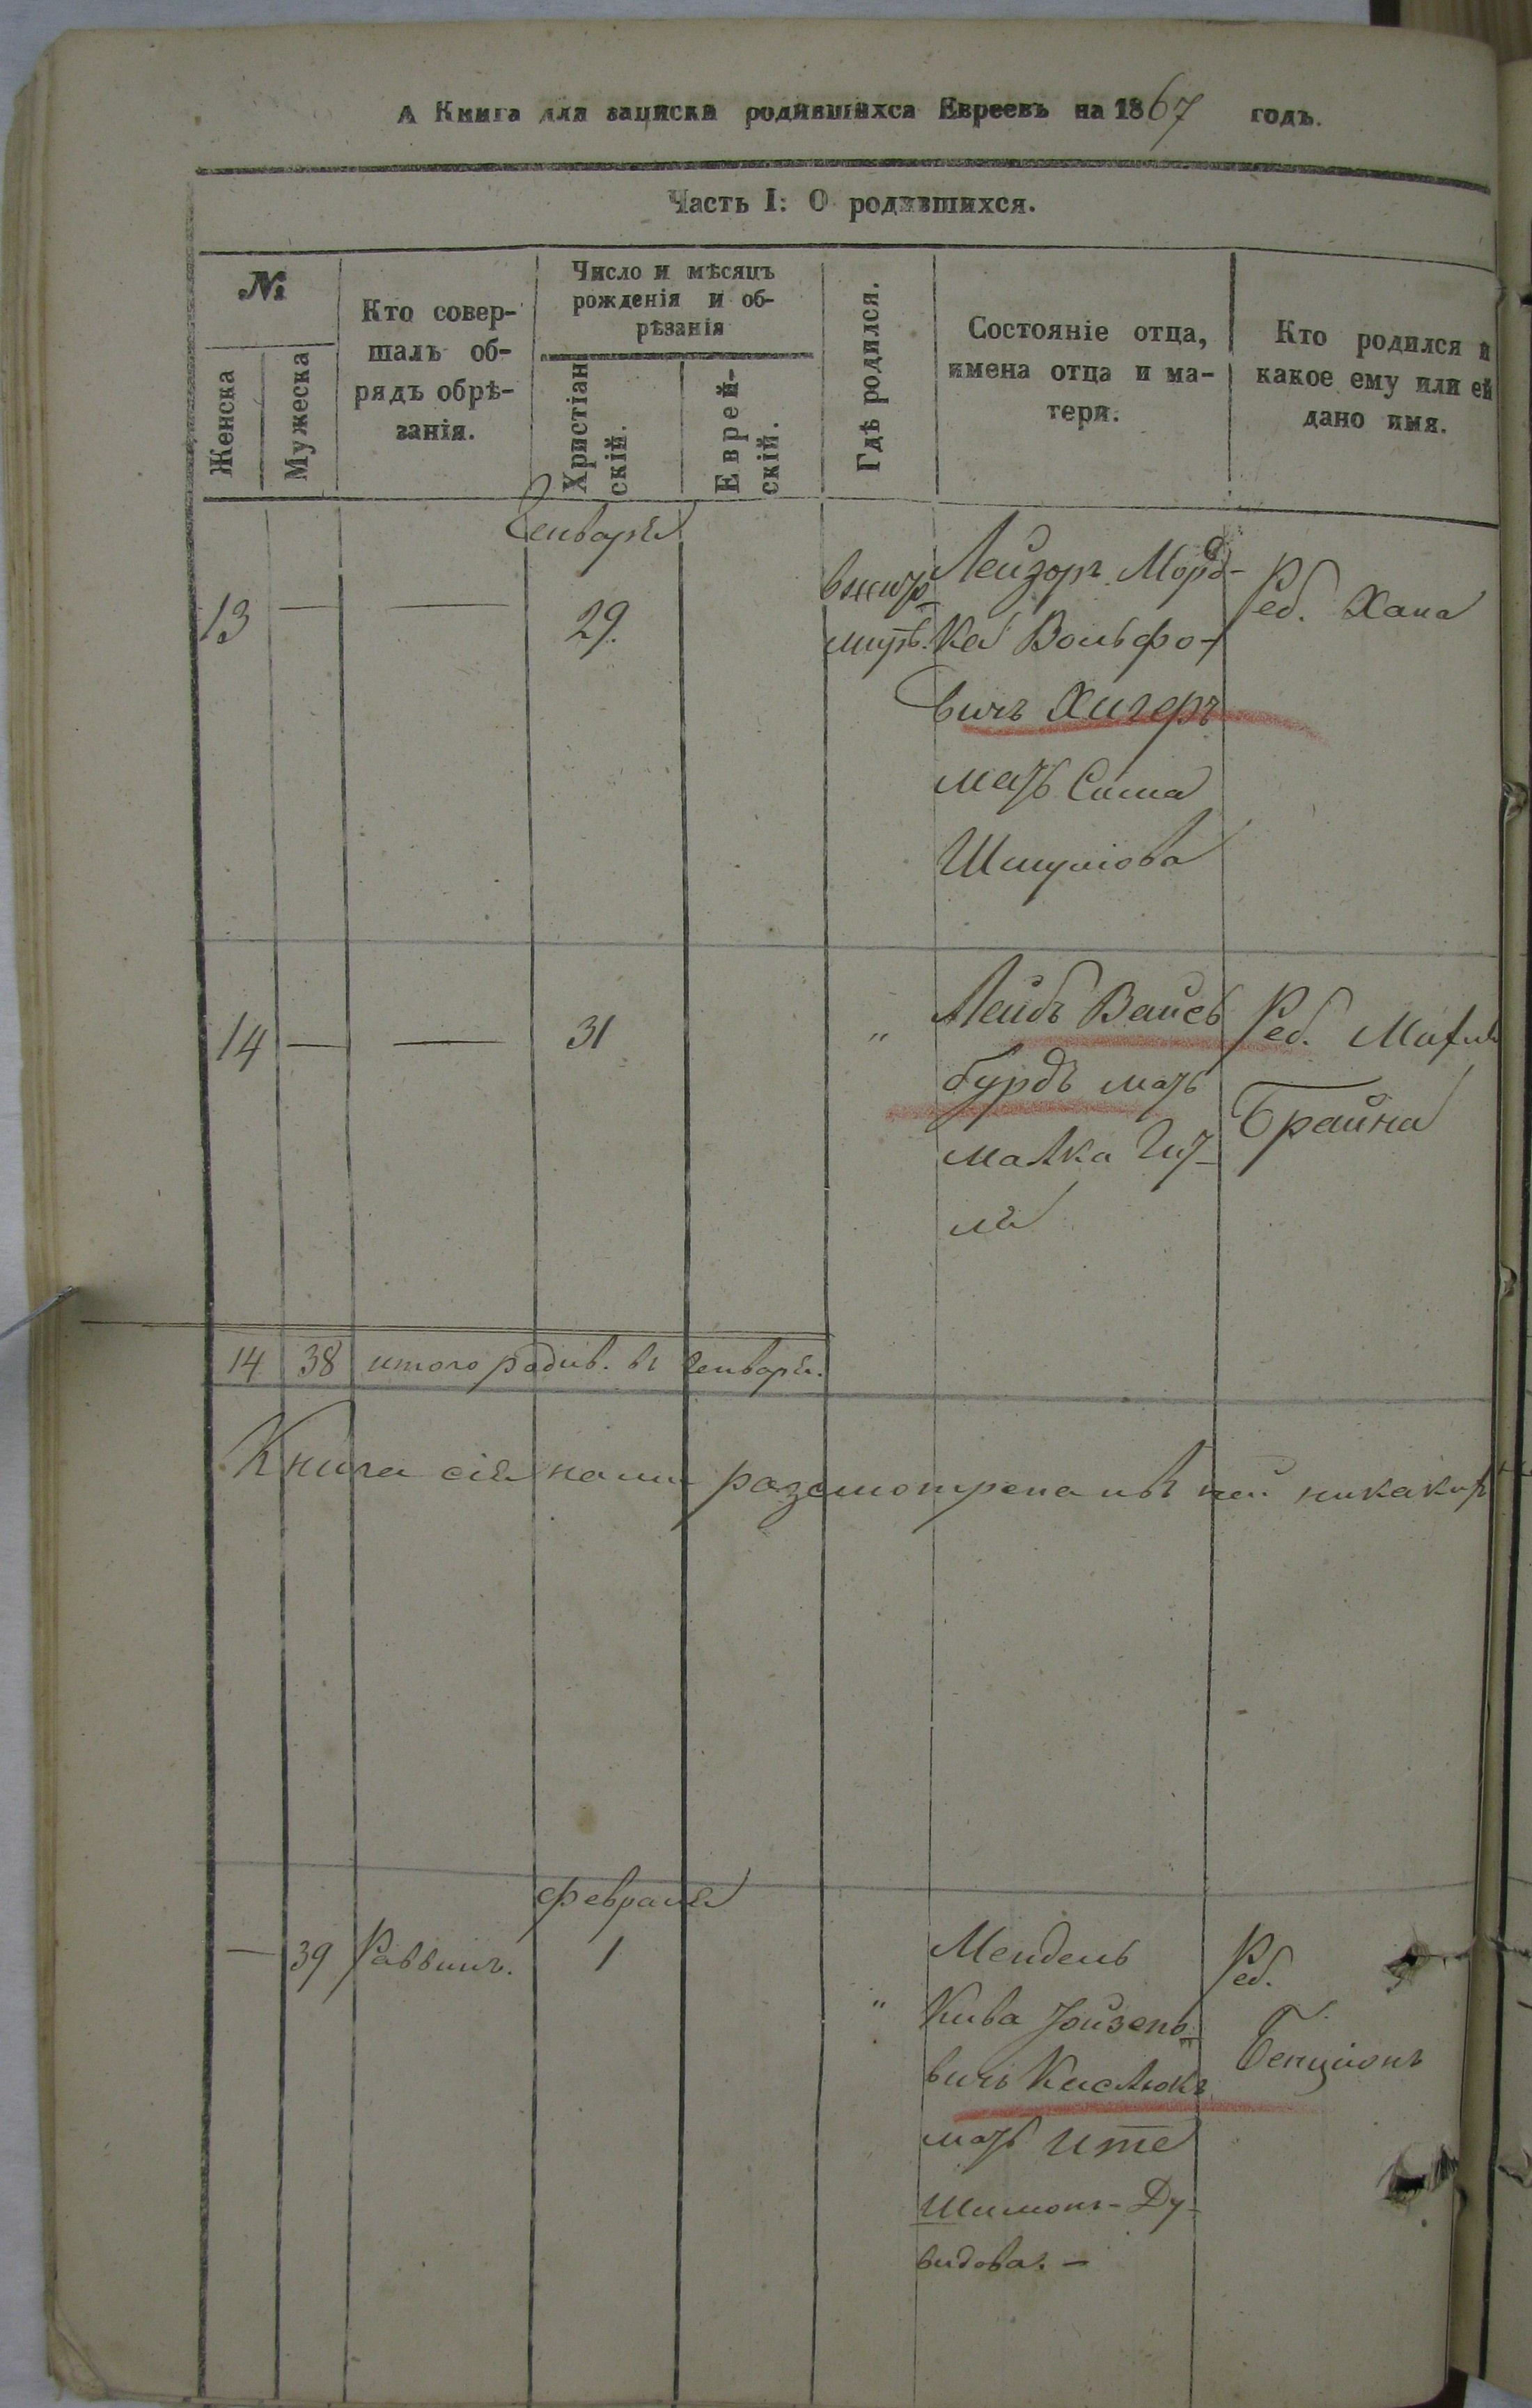 А Книга для записки родившихся Евреевъ на 1867 годъ.
Часть I: О родившихся.
№
Женска
Мужеска
Кто совер-
шалъ об-
рядъ обрѣ-
занія.
Число и мѣсяцъ
рожденія и об-
рѣзанія
Христіан
скій.
Еврей-
скій.
Гдѣ родился.
Состояніе отца,
имена отца и ма-
тери.
Кто родился и
какое ему или ей
дано имя.
Генваря
13 — — 29.
Лейзоръ Морд-
ка Вольфо-
вичъ Хигеръ
мать Сима
Шмулова
Реб. Хана
14 — — 31 "
Лейбъ Вайсъ
бурдъ мать
малка Гит-
ля
Реб.
Брайна
14 38 итого родив. въ Генваря.
Книга сія нами разсмотрена и въ ней никакихъ
февраля
— 39 Раввинъ. 1 "
Мендель
Кива
вичъ Кислюкъ
мать Ите
Шимонъ-Ду-
видова. —
Реб.
Бенціонъ